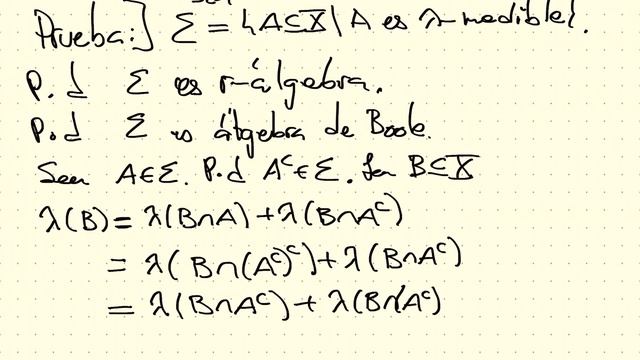 Prueba:] Σ = {A⊆X | A es λ-medible}.
P.d Σ es σ-álgebra.
P.d Σ es álgebra de Boole.
Sea A∈Σ. P.d Aᶜ∈Σ. Sea B⊆X
λ(B) = λ(B∩A) + λ(B∩Aᶜ)
= λ(B∩(Aᶜ)ᶜ) + λ(B∩Aᶜ)
= λ(B∩Aᶜ) + λ(B∩(Aᶜ)